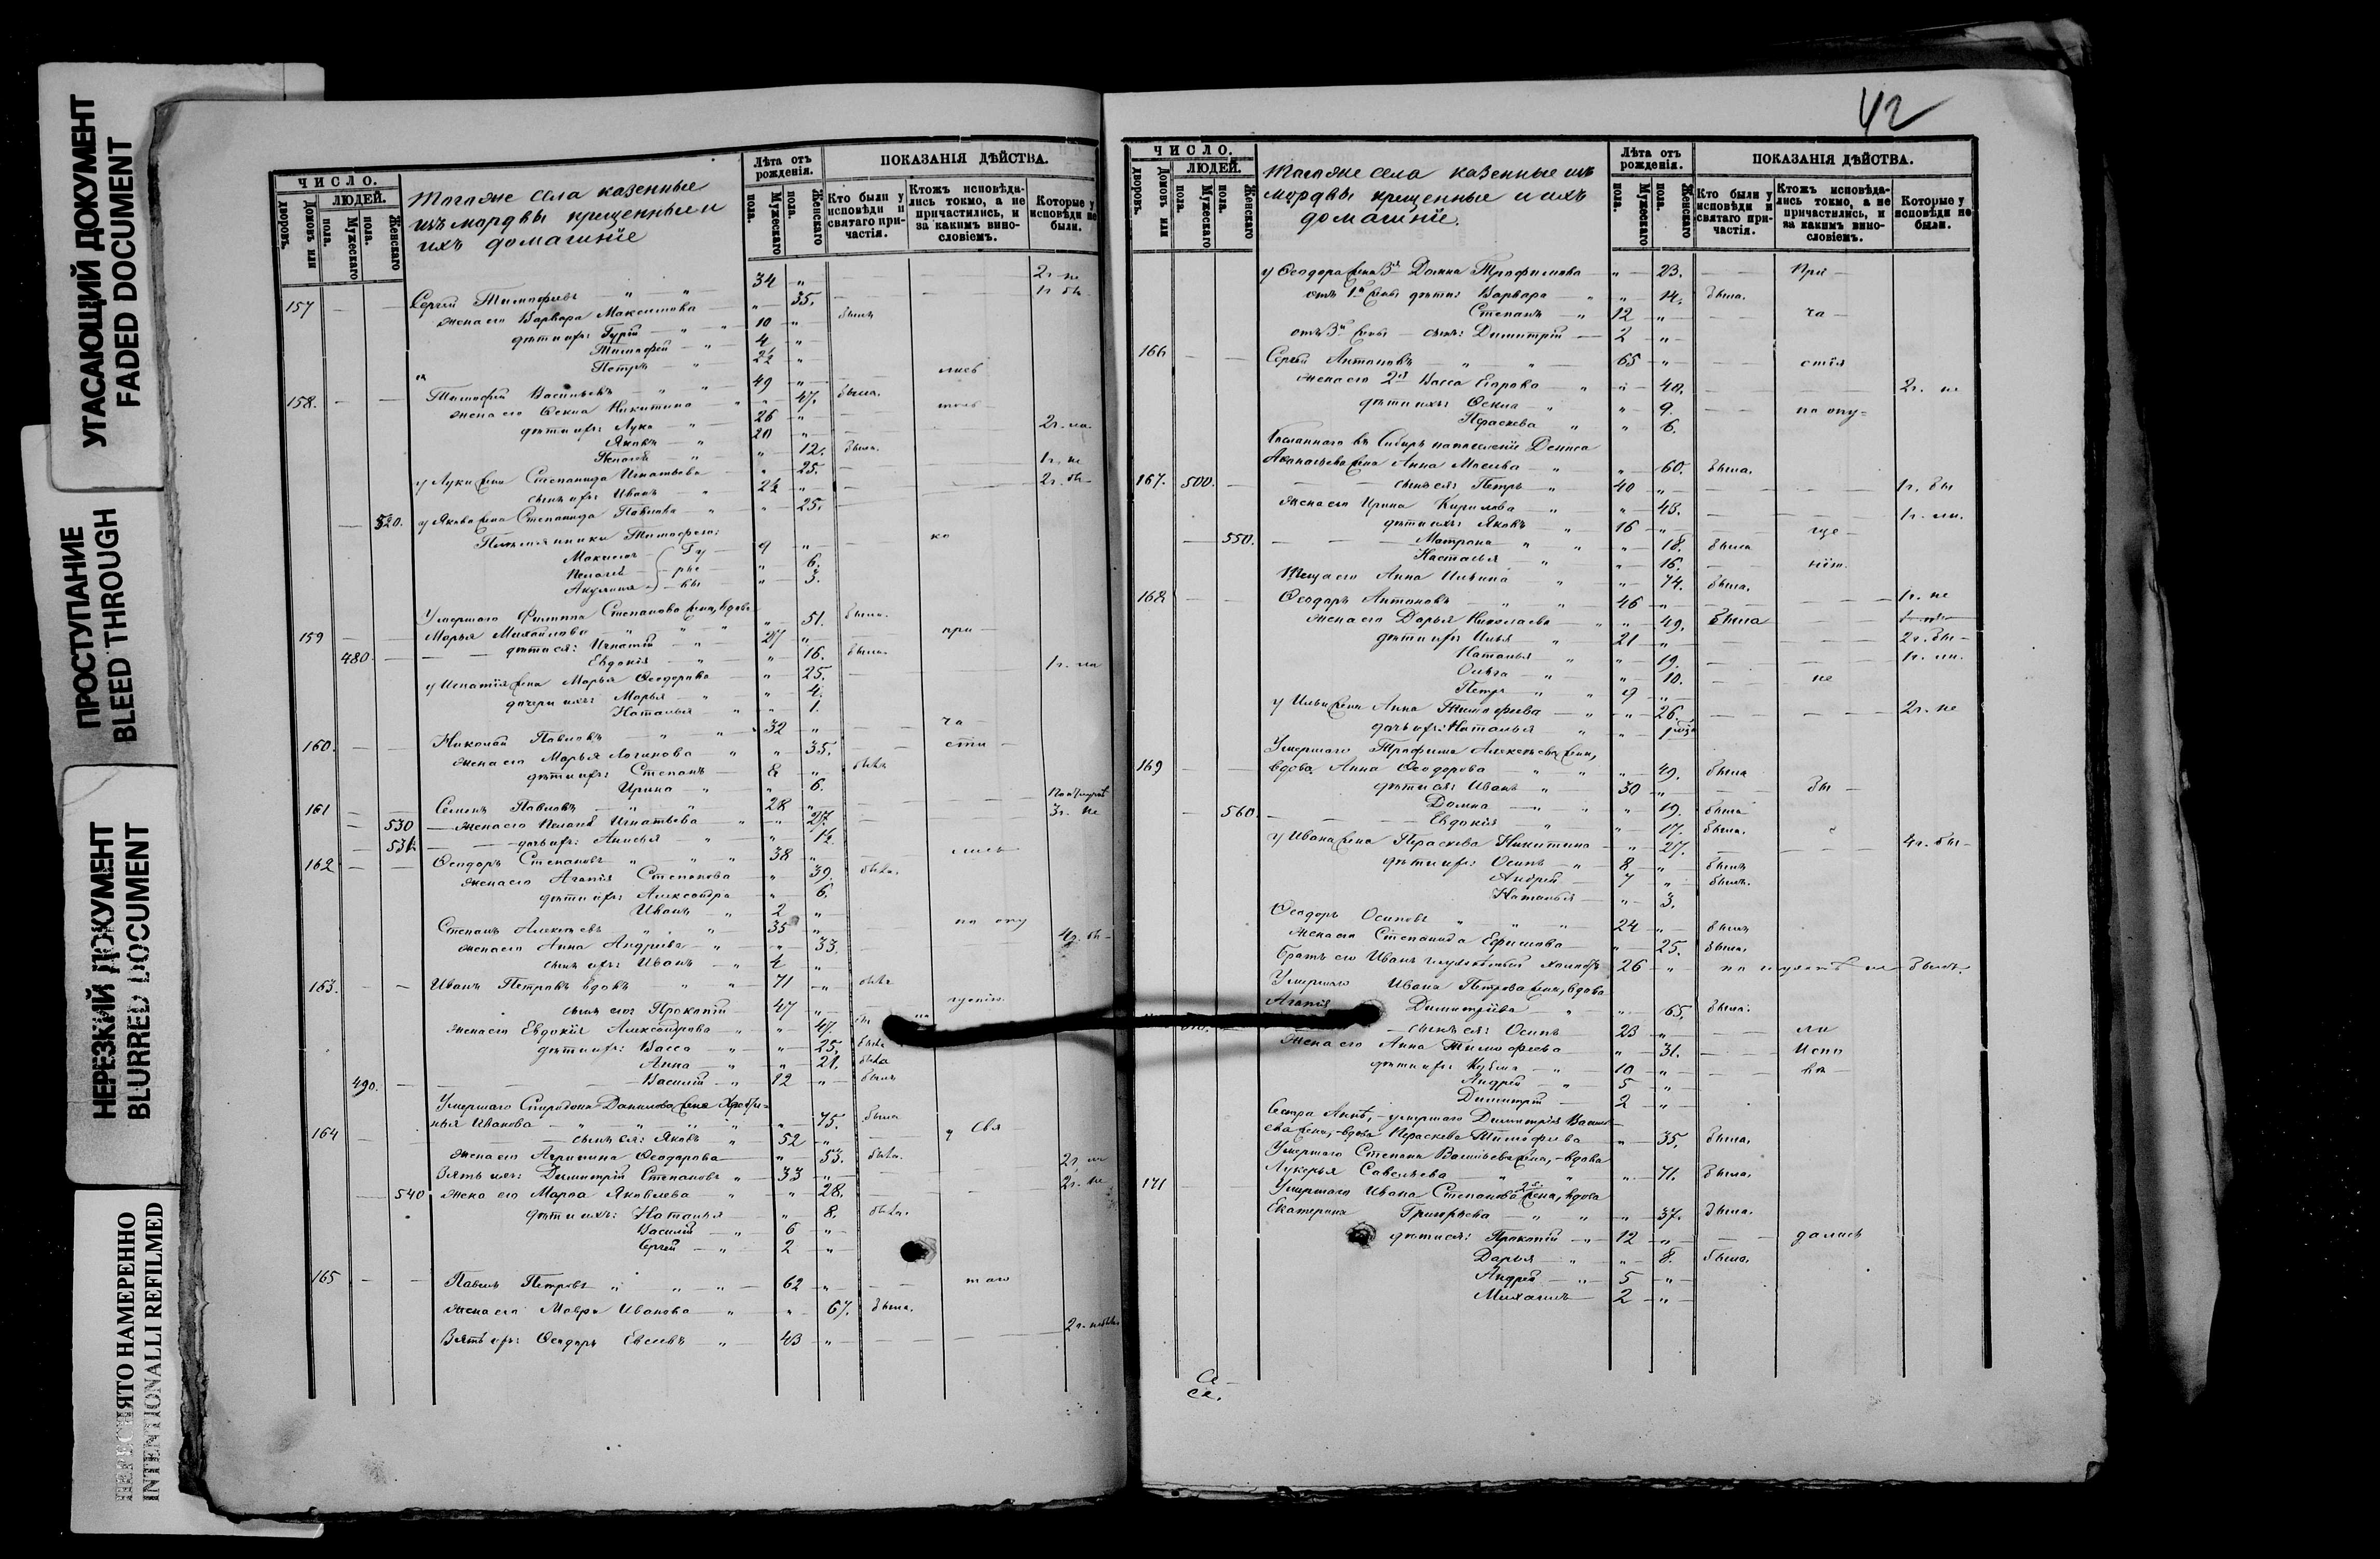 УГАСАЮЩИЙ ДОКУМЕНТ
FADED DOCUMENT
ПРОСТУПАНИЕ
BLEED THROUGH
НЕРЕЗКИЙ ДОКУМЕНТ
BLURRED DOCUMENT
ПЕРЕСНЯТО НАМЕРЕННО
INTENTIONALLI REFILMED
ЧИСЛО.
ЛЮДЕЙ.
Домовъ или дворовъ.
Мужескаго пола.
Женскаго
Тогоже села казенные
изъ мордвы крещенные и
ихъ домашніе
Лѣта отъ рожденія.
Мужескаго пола.
Женскаго пола.
ПОКАЗАНІЯ ДѢЙСТВА.
Кто были у исповѣди и святаго причастія.
Ктожъ исповѣдались токмо, а не причастились, и за какимъ винословіемъ.
Которые у исповѣди не были.
157 Сергѣй Тимофеевъ " " 34 " 2г. не
жена его Варвара Максимова " 35. 1г. бы
дѣти ихъ: Гурій " " 10 " былъ
Тимофей " 4 "
Петръ " 2½ "
158. Тимофей Васильевъ " " 49 " лись
жена его Ѳекла Никитина " " 47. была.
дѣти ихъ: Лука " 26 "
Яковъ " 20 "
Пелагея " " 12. была.
у Луки жена Степанида Игнатьева " 25. 1г. не
сынъ ихъ: Иванъ " 2½ " 2г. бы
520. у Якова жена Степанида Павлова " " 25.
Племянники Тимофея: ко
Максимъ Гу 9 "
Пелагея рье " 6.
Акулина вы " 3.
Умершаго Филиппа Степанова жена, вдова
159 Марья Михайлова " " " " 51. была.
480. дѣти ея: Игнатій " 27 " при
Евдокія " " 16. была.
у Игнатія жена Марья Ѳеодорова " 25. 1г. ли
дочери ихъ: Марья " " 4.
Наталья " " 1.
160. Николай Павловъ " " 32 " ча
жена его Марья Логинова " " 35. сти
дѣти ихъ: Степанъ 8 " былъ
Ирина " " 6.
161 Семенъ Павловъ " " 28 "
530 жена его Пелагея Игнатьева " " 27. 3г. не
531. дочь ихъ: Анисья " " 1½
162 Ѳеодоръ Степановъ " " " 38 " лись
жена его Агапія Степанова " 39. была.
дѣти ихъ: Александра " 6.
Иванъ " 2 "
Степанъ Алексѣевъ " " 35 " по опу
жена его Анна Андреева " " 33. 4г. бы
сынъ ихъ: Иванъ " 4 "
163. Иванъ Петровъ вдовъ " " 71 " былъ
сынъ его: Прокопій 47 " щенію.
жена его Евдокія Александрова " " 47.
дѣти ихъ: Васса " " 25. была
Анна " " 21. была
490. Василій " 12 " былъ
Умершаго Спиридона Данилова жена
Иванова " " " " " 75. была
164 сынъ ея: Яковъ " 52 " у свя
жена его Агрипина Ѳеодорова " 53. была. 2г. не
Зять ихъ: Димитрій Степановъ " 33 " 2г. не
540 жена его Марѳа Яковлева " " 28.
дѣти ихъ: Наталья " 8. была.
Василій " 6 "
Сергѣй " 2 "
165 Павелъ Петровъ " " " 62 " таго
жена его Мавра Иванова " " 67. была.
Зять ихъ: Ѳеодоръ Евсеевъ " 43 "
42
ЧИСЛО.
ЛЮДЕЙ.
Домовъ или дворовъ.
Мужескаго пола.
Женскаго
Тогоже села казенные изъ
мордвы крещенные и ихъ
домашніе.
Лѣта отъ рожденія.
Мужескаго пола.
Женскаго пола.
ПОКАЗАНІЯ ДѢЙСТВА.
Кто были у исповѣди и святаго причастія.
Ктожъ исповѣдались токмо, а не причастились, и за какимъ винословіемъ.
Которые у исповѣди не были.
у Ѳеодора жена 3я Домна Трофимова " 23. При
отъ 1й жены дѣти: Варвара " " 14. была.
Степанъ " 12 " ча
отъ 3й жены сынъ: Димитрій 2 "
166 Сергѣй Антоновъ " " 65 " стія
жена его 2я Васса Егорова " " 40. 2г. не
дѣти ихъ: Ѳекла " " 9. по опу=
Параскева " " 6.
Сосланнаго въ Сибирь на поселеніе Дениса
Аѳанасьева жена Анна Мосеева " " 60. была.
167. 500. сынъ ея: Петръ " 40 " 1г. бы
жена его Ирина Кирилова " " 48. 1г. ли.
дѣти ихъ: Яковъ " 16 " ще
550. Матрона " " " 18. была
Настасья " " 16. нію.
Теща его Анна Ильина " " 74. была.
168 Ѳеодоръ Антоновъ " " 46 " 1г. не
жена его Дарья Николаева " " 49. была
дѣти ихъ: Илья " 21 " 2г. бы
Наталья " " 19. 1г. ли.
Ольга " " 10. не
Петръ " " 9 "
у Ильи жена Анна Тимофеева " " 26. 2г. не
дочь ихъ: Наталья " "
Умершаго Трофима Алексѣева жена,
169 вдова Анна Ѳеодорова " " " 49. была
дѣти ея: Иванъ " 30 " бы
Домна " " " 19. была
560. Евдокія " " 17. была.
у Ивана жена Параскева Никитина " 27. 4г. бы
дѣти ихъ: Осипъ " 8 " былъ
Андрей 7 " былъ.
Наталья " 3.
Ѳеодоръ Осиповъ " " " 24 " былъ
жена его Степанида Ефимова " 25. была.
братъ его Иванъ 26 " не былъ.
Умершаго Ивана Петрова жена, вдова
Агапія Димитріева " " 65. была.
сынъ ея: Осипъ 23 " ли
жена его Анна Тимофеева " 31. Испо
дѣти ихъ: Кузьма " 10 " вѣ
Андрей " 5 "
Димитрій 2 "
Сестра Аннѣ, умершаго Димитрія Василь
ева жена, вдова Параскева Тимофеева " 35. была.
Умершаго Степана Васильева жена, вдова
Лукерья Савельева " " " 71. была.
171 Умершаго Ивана Степанова 2я жена, вдова
Екатерина Григорьева " " " 37. была.
дѣти ея: Прокопій " 12 " дались
Дарья " " 8. была.
Андрей " 5 "
Михаилъ 2 "